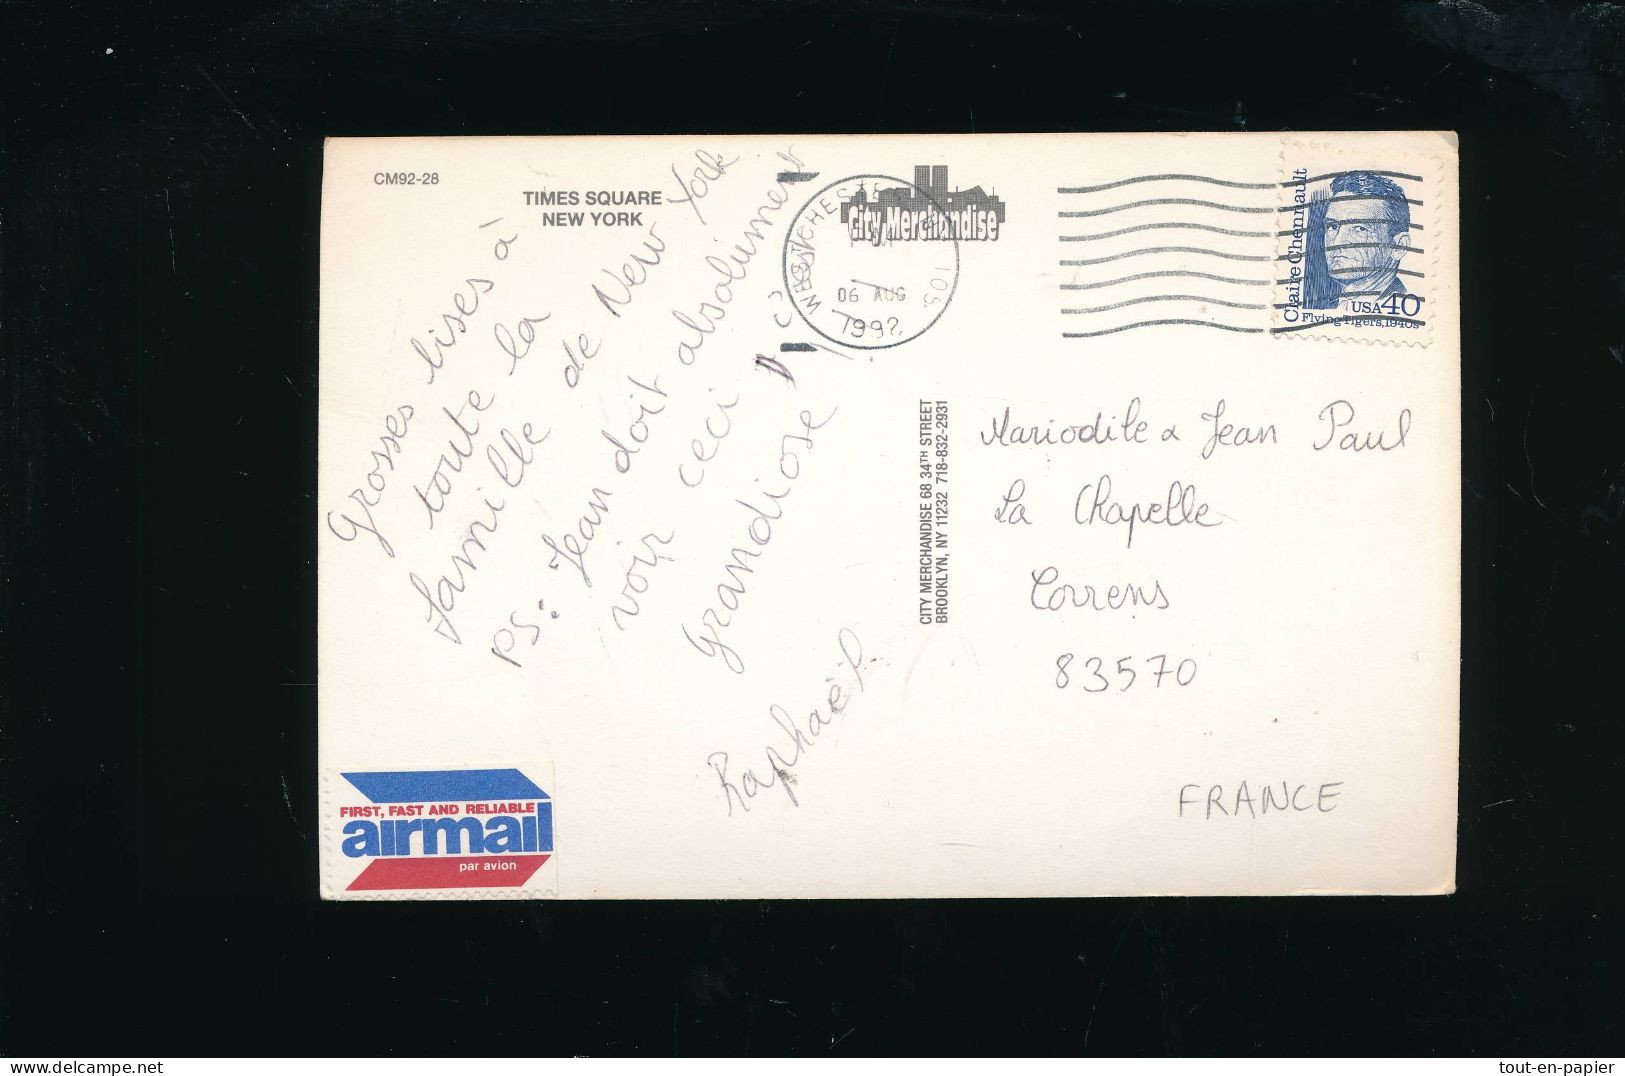 CM92-28
TIMES SQUARE
NEW YORK
Grosses bises à
toute la
famille de New York
PS: Jean doit absolument
voir ceci
Grandiose
Raphaël
City Merchandise
06 AUG
1992
Claire Chennault
USA40
Flying Tigers, 1940s
CITY MERCHANDISE 68 34TH STREET
BROOKLYN, NY 11232 718-832-2931
Mariodile & Jean Paul
La Chapelle
Correns
83570
FRANCE
FIRST, FAST AND RELIABLE
airmail
par avion
tout-en-papier